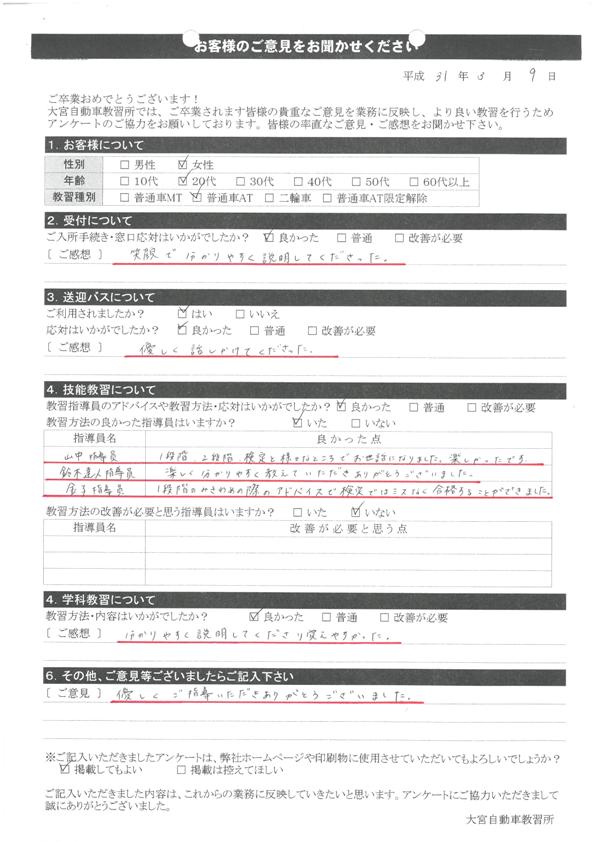 お客様のご意見をお聞かせください
平成 31 年 3 月 9 日
ご卒業おめでとうございます！
大宮自動車教習所では、ご卒業されます皆様の貴重なご意見を業務に反映し、より良い教習を行うため
アンケートのご協力をお願いしております。皆様の率直なご意見・ご感想をお聞かせ下さい。
1. お客様について
性別 □ 男性 ☑ 女性
年齢 □ 10代 ☑ 20代 □ 30代 □ 40代 □ 50代 □ 60代以上
教習種別 □ 普通車MT ☑ 普通車AT □ 二輪車 □ 普通車AT限定解除
2. 受付について
ご入所手続き・窓口応対はいかがでしたか？ ☑ 良かった □ 普通 □ 改善が必要
〔 ご感想 〕 笑顔で分かりやすく説明してくださった。
3. 送迎バスについて
ご利用されましたか？ ☑ はい □ いいえ
応対はいかがでしたか？ ☑ 良かった □ 普通 □ 改善が必要
〔 ご感想 〕 優しく話しかけてくださった。
4. 技能教習について
教習指導員のアドバイスや教習方法・応対はいかがでしたか？ ☑ 良かった □ 普通 □ 改善が必要
教習方法の良かった指導員はいますか？ ☑ いた □ いない
指導員名 良かった点
山中指導員 1段階、2段階、検定と様々なところでお世話になりました。楽しかったです。
鈴木達人指導員 楽しく分かりやすく教えていただきありがとうございました。
金子指導員 1段階のみきわめの際のアドバイスで検定ではミスなく合格することができました。
教習方法の改善が必要と思う指導員はいますか？ □ いた ☑ いない
指導員名 改善が必要と思う点
4. 学科教習について
教習方法・内容はいかがでしたか？ ☑ 良かった □ 普通 □ 改善が必要
〔 ご感想 〕 分かりやすく説明してくださり覚えやすかった。
6. その他、ご意見等ございましたらご記入下さい
〔 ご意見 〕 優しくご指導いただきありがとうございました。
※ご記入いただきましたアンケートは、弊社ホームページや印刷物に使用させていただいてもよろしいでしょうか？
☑ 掲載してもよい □ 掲載は控えてほしい
ご記入いただきました内容は、これからの業務に反映していきたいと思います。アンケートにご協力いただきまして
誠にありがとうございました。
大宮自動車教習所